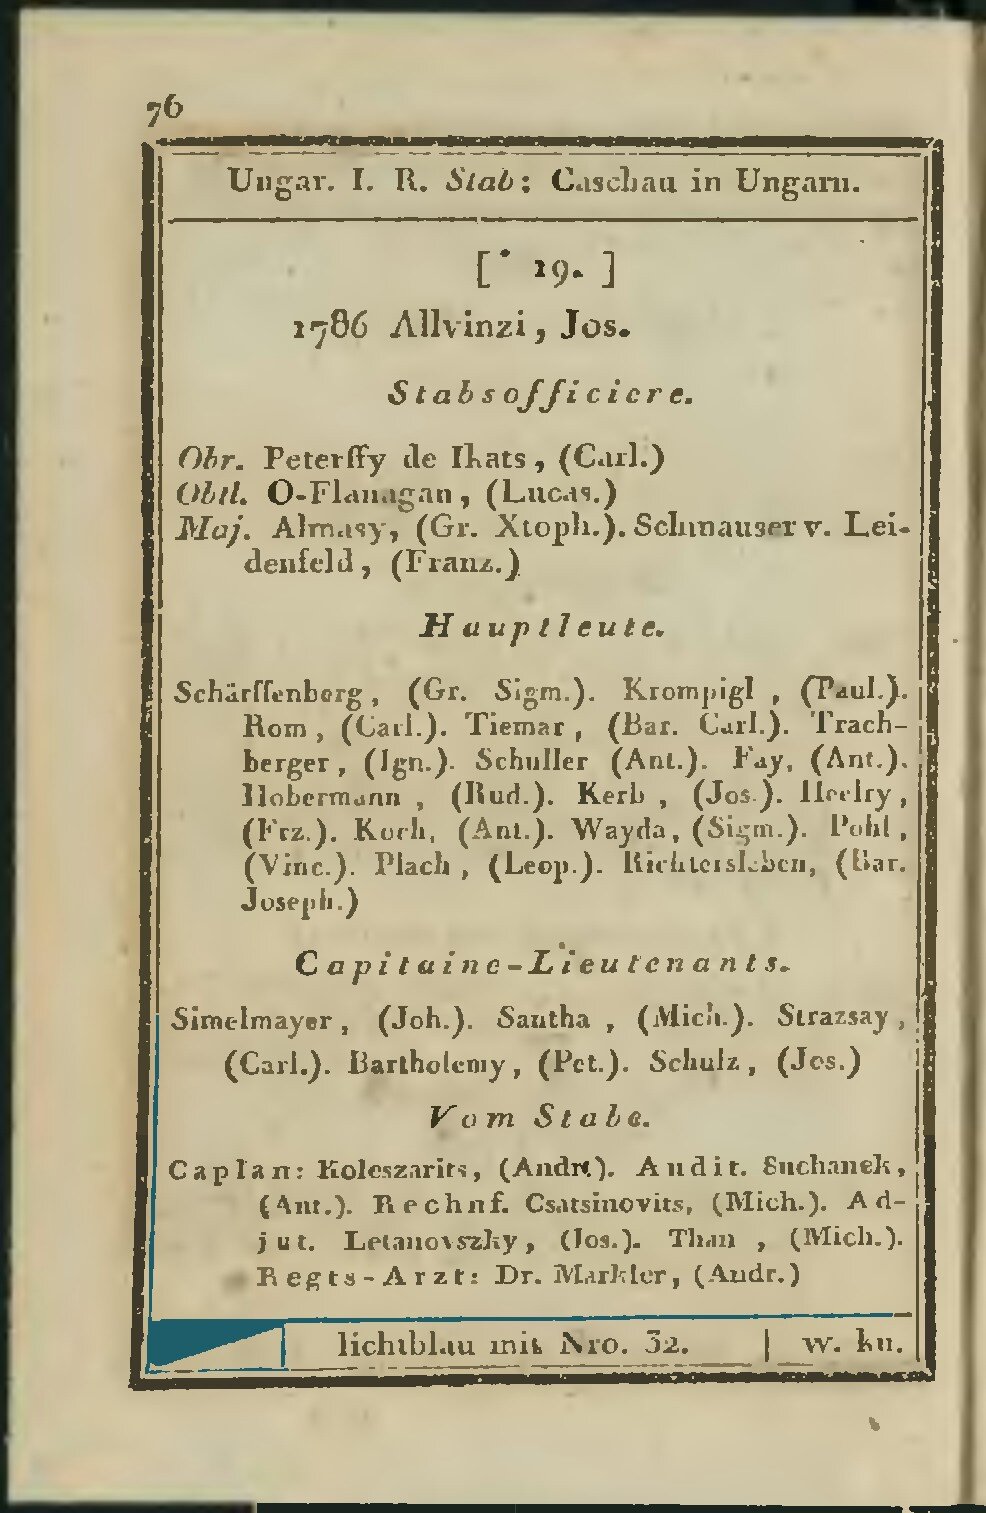 76
Ungar. I. R. Stab: Caschau in Ungarn.
[* 19. ]
1786 Allvinzi, Jos.
Stabsofficiere.
Obr. Peterffy de Ikats, (Carl.)
Obtl. O-Flanagan, (Lucas.)
Maj. Almasy, (Gr. Xtoph.). Schnauser v. Lei-
denfeld, (Franz.)
Hauptleute.
Schärffenberg, (Gr. Sigm.). Krompigl, (Paul.).
Rom, (Carl.). Tiemar, (Bar. Carl.). Trach-
berger, (Ign.). Schuller (Ant.). Fay, (Ant.).
Hobermann, (Rud.). Kerb, (Jos.).
(Frz.). Koch, (Ant.). Wayda, (Sigm.). Pohl,
(Vinc.). Plach, (Leop.). Richtersleben, (Bar.
Joseph.)
Capitaine-Lieutenants.
Simelmayer, (Joh.). Santha, (Mich.). Strazsay,
(Carl.). Bartholemy, (Pet.). Schulz, (Jos.)
Vom Stabe.
Caplan: Koleszarits, (Andr.). Audit. Suchanek,
(Ant.). Rechnf. Csatsinovits, (Mich.). Ad-
jut. Letanovszky, (Jos.). Than, (Mich.).
Regts-Arzt: Dr. Markler, (Andr.)
lichtblau mit Nro. 32. | w. kn.